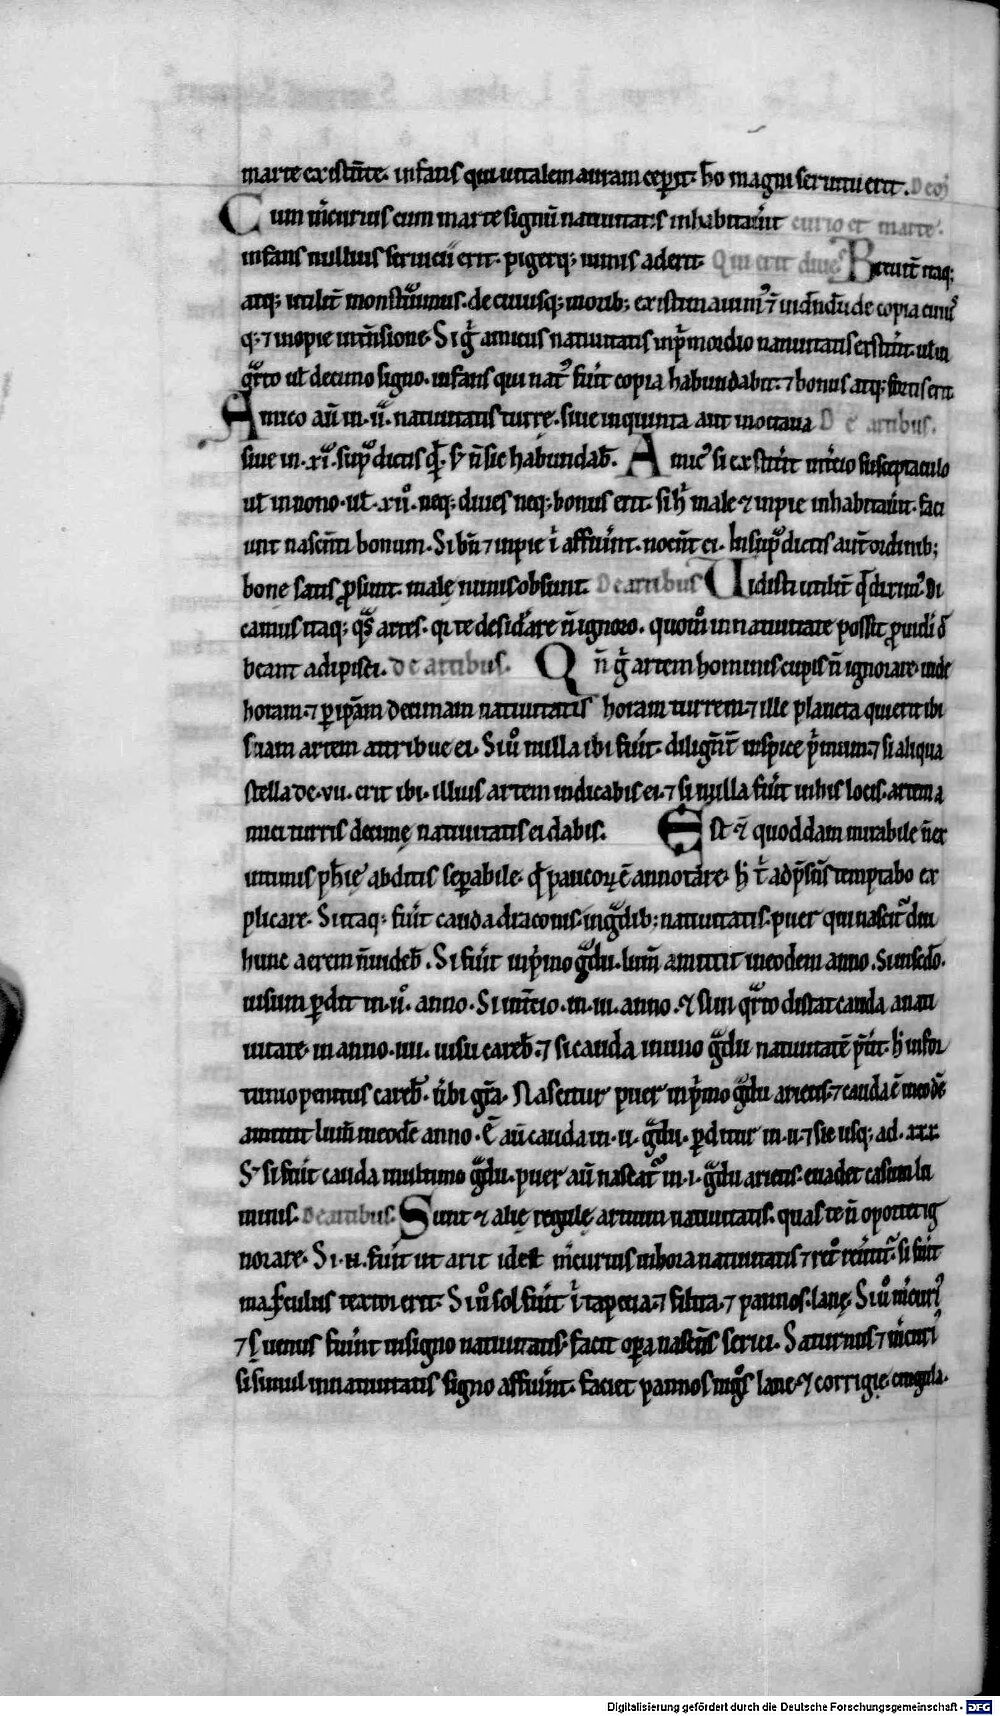 marte existente. infans qui vitalem auram ceperit. h̄o magni seruitii erit. De
Cum m̄curius cum marte signū natiuitatis inhabitau̾it curio et marte.
infans nullius seruicii erit. pigerq; nimis aderit. Qui erit diues Breuit̄ itaq;
atq; utilit̄ monstrauimus. de cuiusq; morib; existim̄ ⁊ uidēdū de copia
q; ⁊ inopie intēsione. Si gͥ amicus natiuitatis in p̄mordio natiuitatis extit̾it. ul̄ in
qͣrto ul̄ decimo signo. infans qui natꝰ fu̾it copia habundabit. ⁊ bonus atq; fortis erit
Amico aū in .ii. natiuitatis turre. siue in quinta aut in octaua De artibus.
siue in .xi. sup̄dictis sic habundab̄. Amicꝰ si extit̾it in t̾cio susceptaculo
ul̄ in nono. ul̄ .xii. neq; diues neq; bonus erit. si hͥ male ⁊ inpie inhabitau̾int. faci
unt nascenti bonum. Si bn̄ ⁊ inpie ī affu̾int. nocēt ei. In sup̄dictis aūt ordinib;
bone satis ꝓsunt. malę nimis obsunt. De artibus Uidisti utilit̄ Di
camus itaq; artes. desid̾are n̄ ignoro. quom̊ in natiuitate possit ꝓuidi
beant adipisci. de artibus. Qn̄ gͥ artem hominis cupis n̄ ignorare. uide
horam. ⁊ ꝑ ip̄am decimam natiuitatis horam turrem. ⁊ ille planeta qui erit ibi
suam artem attribue ei. Si u̾o nulla ibi fu̾it. diligēt̄ inspice p̄mum. ⁊ si aliqua
stella de .vii. erit ibi. illius artem indicabis ei. ⁊ si nulla fu̾it in his locis. artem a
mici turris decimę natiuitatis ei dabis. Est ⁊ quoddam mirabile n̄ ex
intimis ph̄ię abditis sep̄abile. qd̄ paucoꝝ ē annotare. hͥ tͥ ad p̄sēs temptabo ex
plicare. Si itaq; fu̾it cauda draconis. in gͣdib; natiuitatis. puer qui nascit̾ diu
hunc aerem n̄ uideb̄. Si fu̾it in p̄mo gͣdu. lum̄ amittit in eodem anno. Si in sedō.
uisum ꝑdit in .ii. anno. Si in t̾cio. in .iii. anno. ⁊ si in qͣrto distat cauda a nati
uitate. in anno .iiii. uisu careb̄. ⁊ si cauda in uno gͣdu natiuitatē hͥ infor
tunio penitus careb̄. u̾bi gͣ. Nascitur puer in p̄mo gͣdu arietis. ⁊ cauda ē in eodē
amittit lum̄ in eodē anno. Ē aū cauda in .ii. gͣdu. ꝑditur in .ii. ⁊ sic usq; ad .xxx.
Sʒ si fu̾it cauda in ultimo gͣdu. puer aū nascat̾ in .i. gͣdu arietis. euadet casum lu
minis. De artibus. Sunt ⁊ alię regulę artium natiuitatis. quas te n̄ oportet ig
norare. Si .n. fu̾it ut arit idest m̄curius in hora natiuitatis ⁊ si fu̾it
masculus textor erit. Si u̾o sol fu̾it ī tapeta. ⁊ filtra. ⁊ pannos. lanę. Si u̾o m̄curiꝰ
⁊ s; uenus fu̾int in signo natiuitatis. facit oꝑa nascēs serici. Saturnus ⁊ m̄curiꝰ
si simul in natiuitatis signo affu̾int. faciet pannos nigͦs lane. ⁊ corrigię. cingula.
Digitalisierung gefördert durch die Deutsche Forschungsgemeinschaft - DFG